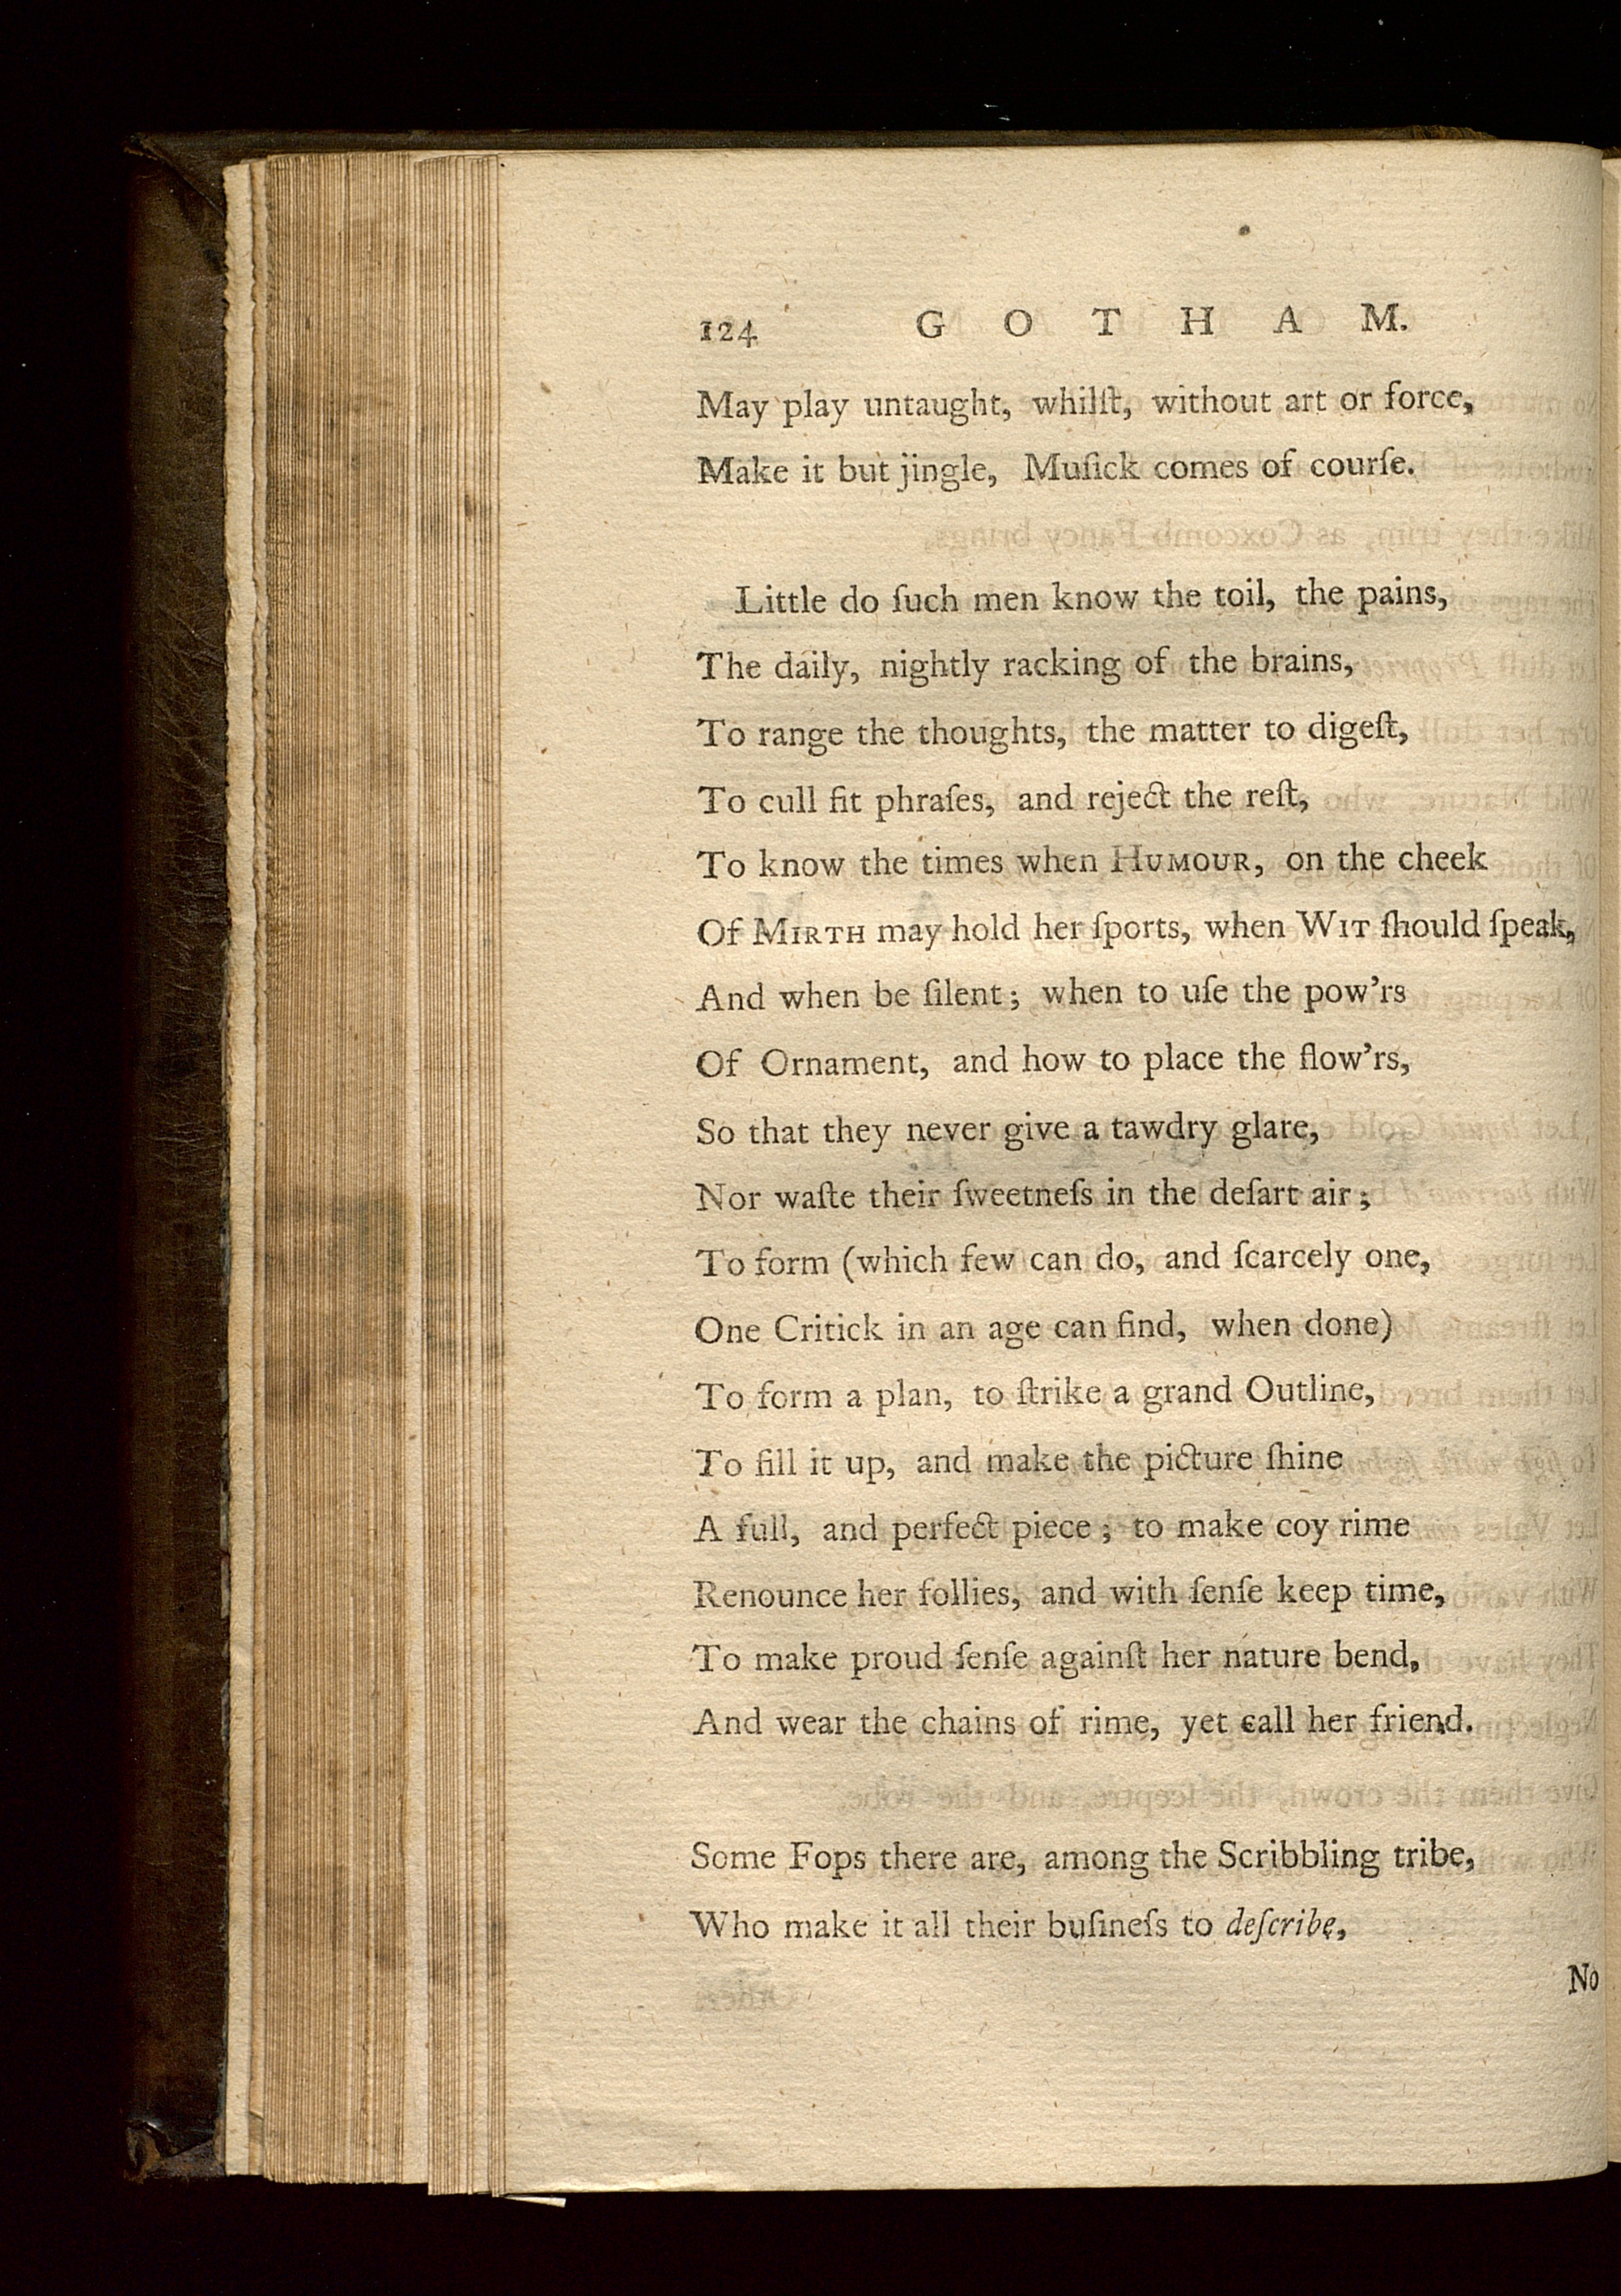 124 GOTHAM.
May play untaught, whilſt, without art or force,
Make it but jingle, Muſick comes of courſe.
Little do ſuch men know the toil, the pains,
The daily, nightly racking of the brains,
To range the thoughts, the matter to digeſt,
To cull fit phraſes, and reject the reſt,
To know the times when HUMOUR, on the cheek
Of MIRTH may hold her ſports, when WIT ſhould ſpeak,
And when be ſilent; when to uſe the pow'rs
Of Ornament, and how to place the flow'rs,
So that they never give a tawdry glare,
Nor waſte their ſweetneſs in the deſart air;
To form (which few can do, and ſcarcely one,
One Critick in an age can find, when done)
To form a plan, to ſtrike a grand Outline,
To fill it up, and make the picture ſhine
A full, and perfect piece; to make coy rime
Renounce her follies, and with ſenſe keep time,
To make proud ſenſe againſt her nature bend,
And wear the chains of rime, yet call her friend.
Some Fops there are, among the Scribbling tribe,
Who make it all their buſineſs to deſcribe,
No